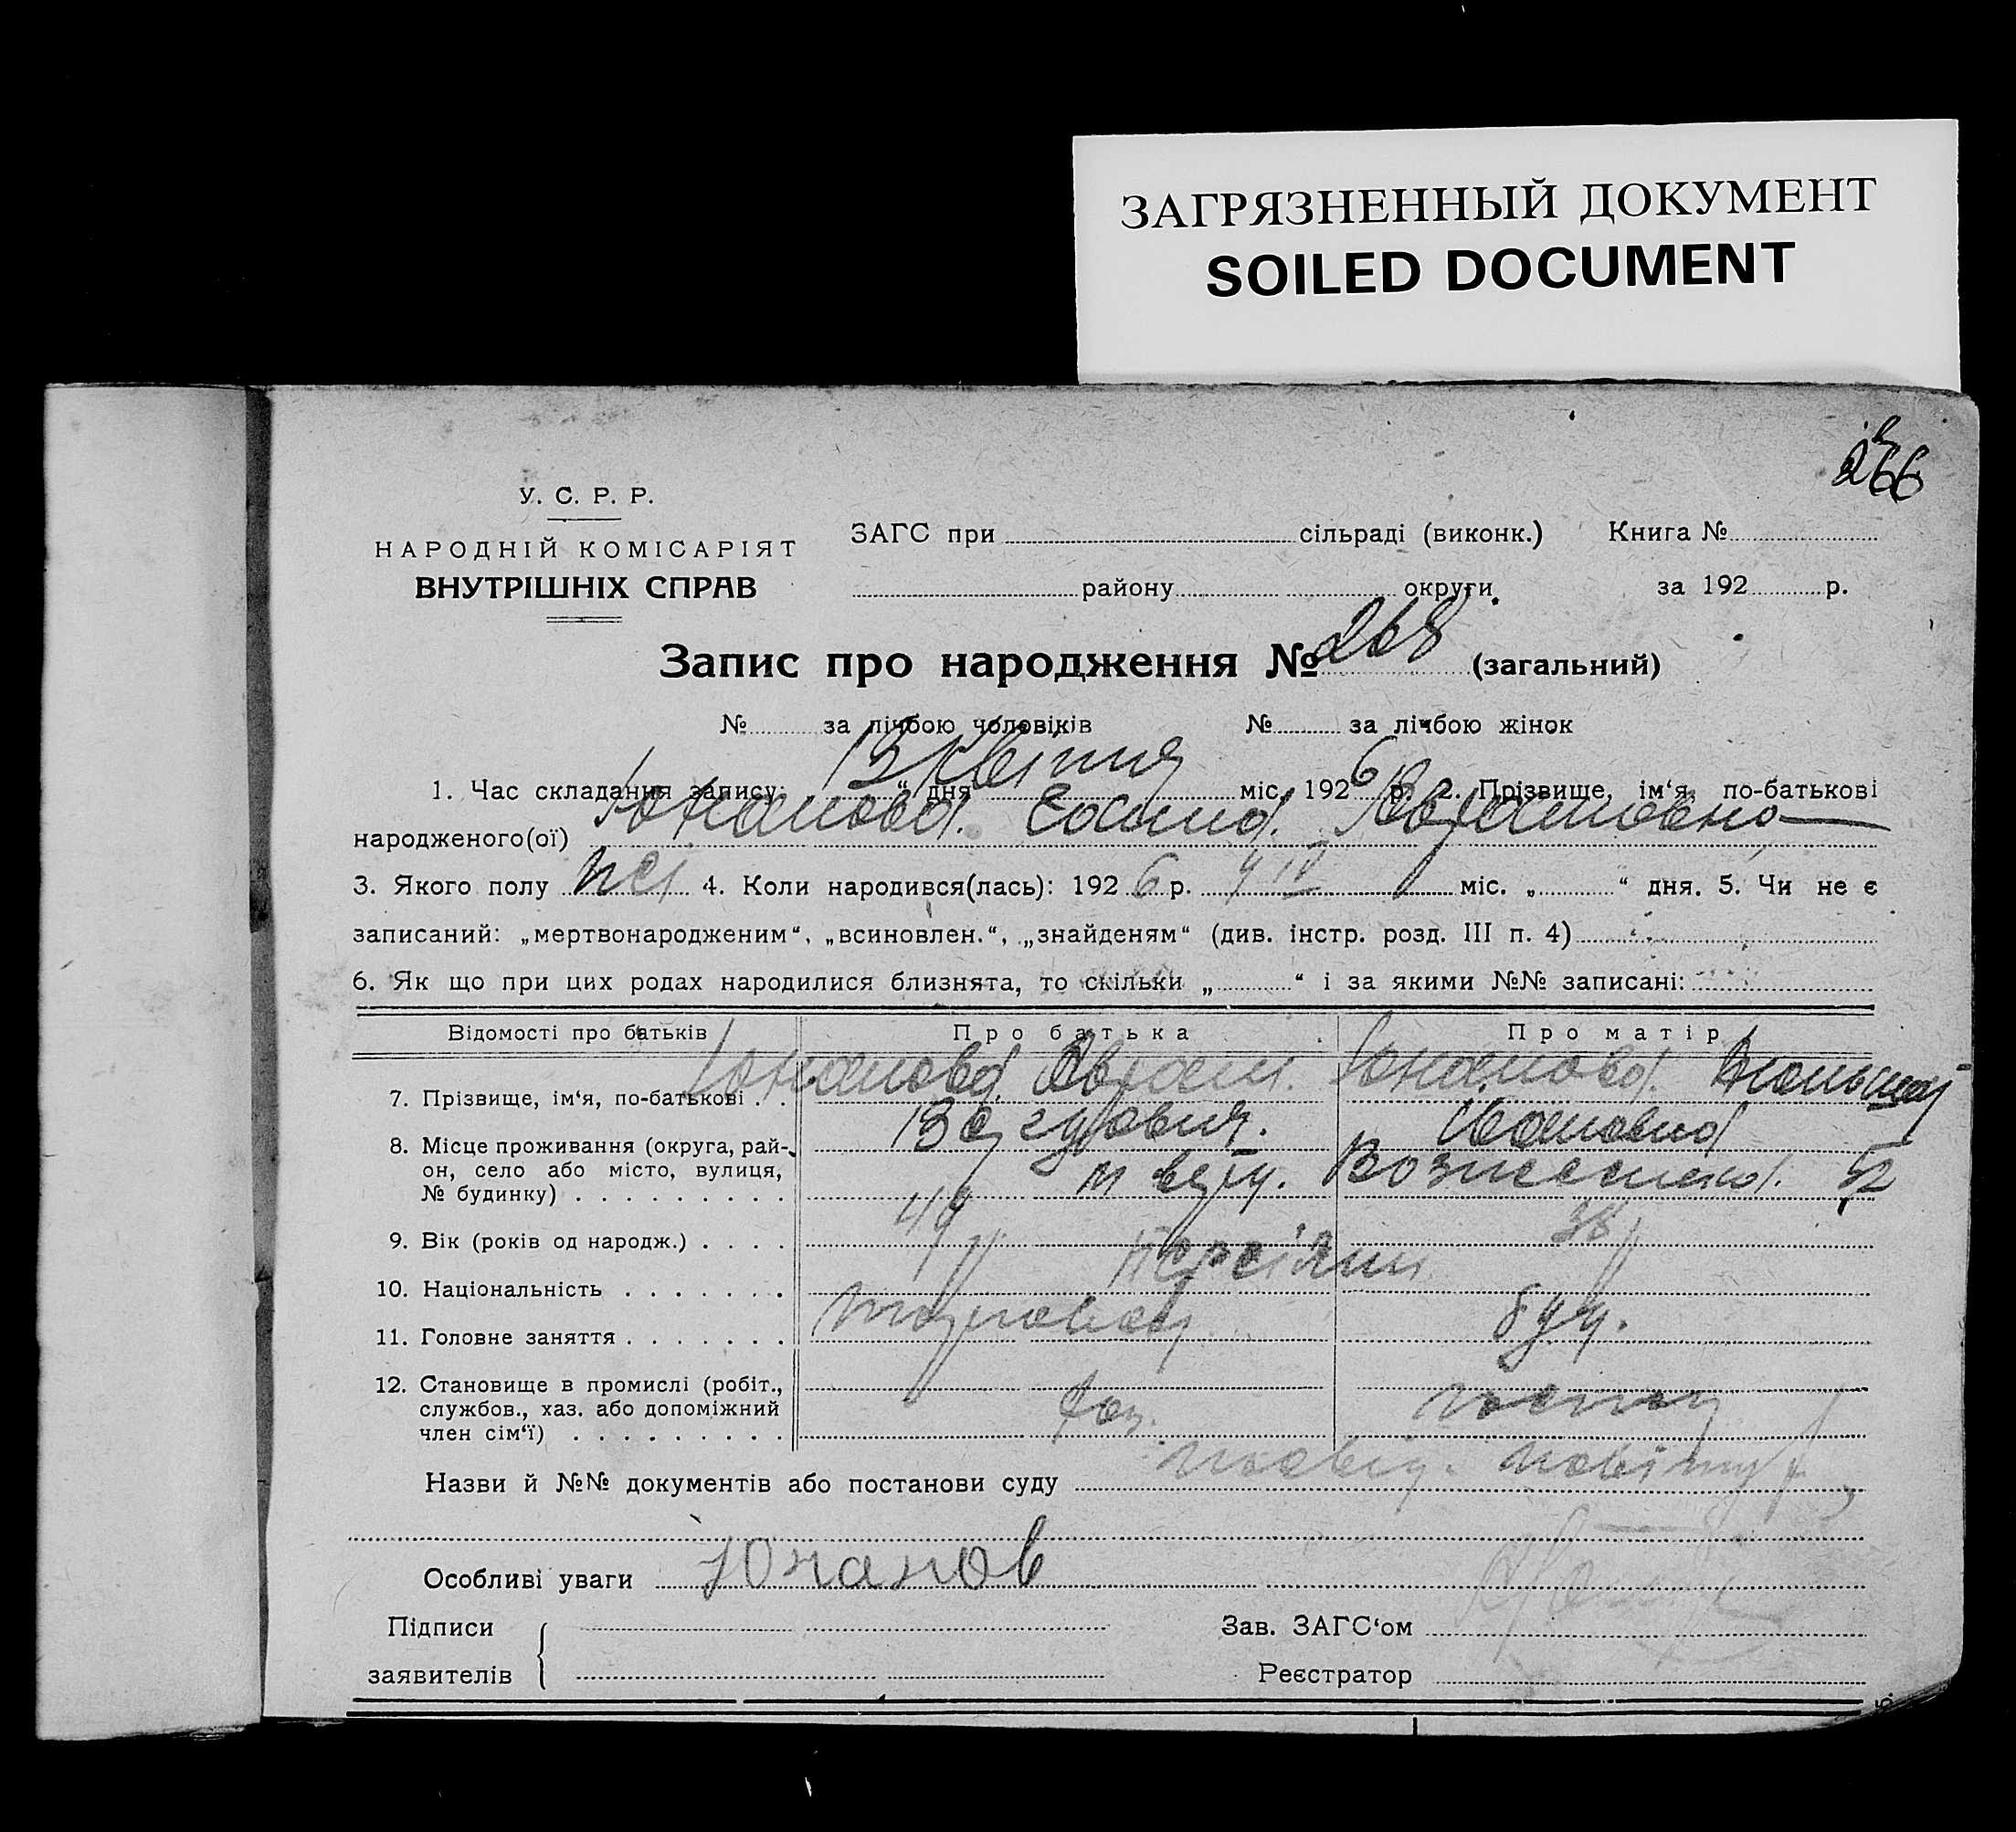 ЗАГРЯЗНЕННЫЙ ДОКУМЕНТ
SOILED DOCUMENT
266
У. С. Р. Р.
НАРОДНІЙ КОМІСАРІЯТ
ВНУТРІШНІХ СПРАВ
ЗАГС при сільраді (виконк.) Книга №
району округи за 192 р.
Запис про народження № 268 (загальний)
№ за лічбою чоловіків № за лічбою жінок
1. Час складання запису: 13 Квітня „ дня міс. 1926 р. 2. Прізвище, ім‘я, по-батькові
народженого(ої) Юнанова
3. Якого полу 4. Коли народився(лась): 1926 р. 4 IV міс. „ “ дня. 5. Чи не є
записаний: „мертвонародженим“, „всиновлен.“, „знайденям“ (див. інстр. розд. III п. 4)
6. Як що при цих родах народилися близнята, то скільки „ “ і за якими №№ записані:
Відомості про батьків Про батька Про матір
7. Прізвище, ім‘я, по-батькові Юнанова Аврам. Юнанова
Ивановна
8. Місце проживання (округа, рай-
он, село або місто, вулиця,
№ будинку) Вознесенск. 52
9. Вік (років од народж.) 49 38
10. Національність Персіяни
11. Головне заняття торговец
12. Становище в промислі (робіт.,
службов., хаз. або допоміжний
член сім‘ї) хоз.
Назви й №№ документів або постанови суду посвід.
Особливі уваги Юнанов
Підписи
заявителів
Зав. ЗАГС‘ом
Реєстратор